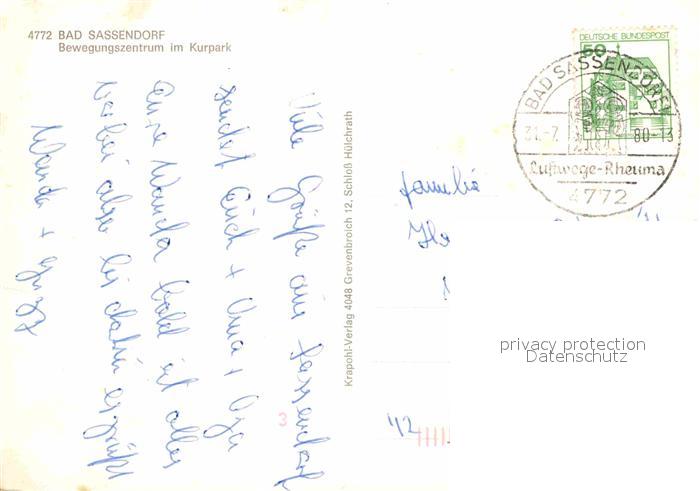 4772 BAD SASSENDORF
Bewegungszentrum im Kurpark
Viele Grüße aus Sassendorf
sendet Euch + Oma + Opa
Eure Wanda bald ist alles
vorbei also bis dahin
Wanda +
Krapohl-Verlag 4048 Grevenbroich 12, Schloß Hülchrath
DEUTSCHE BUNDESPOST
50
BAD SASSENDORF
31.-7. 80-13
Luftwege-Rheuma
4772
Familie
privacy protection
Datenschutz
3
42